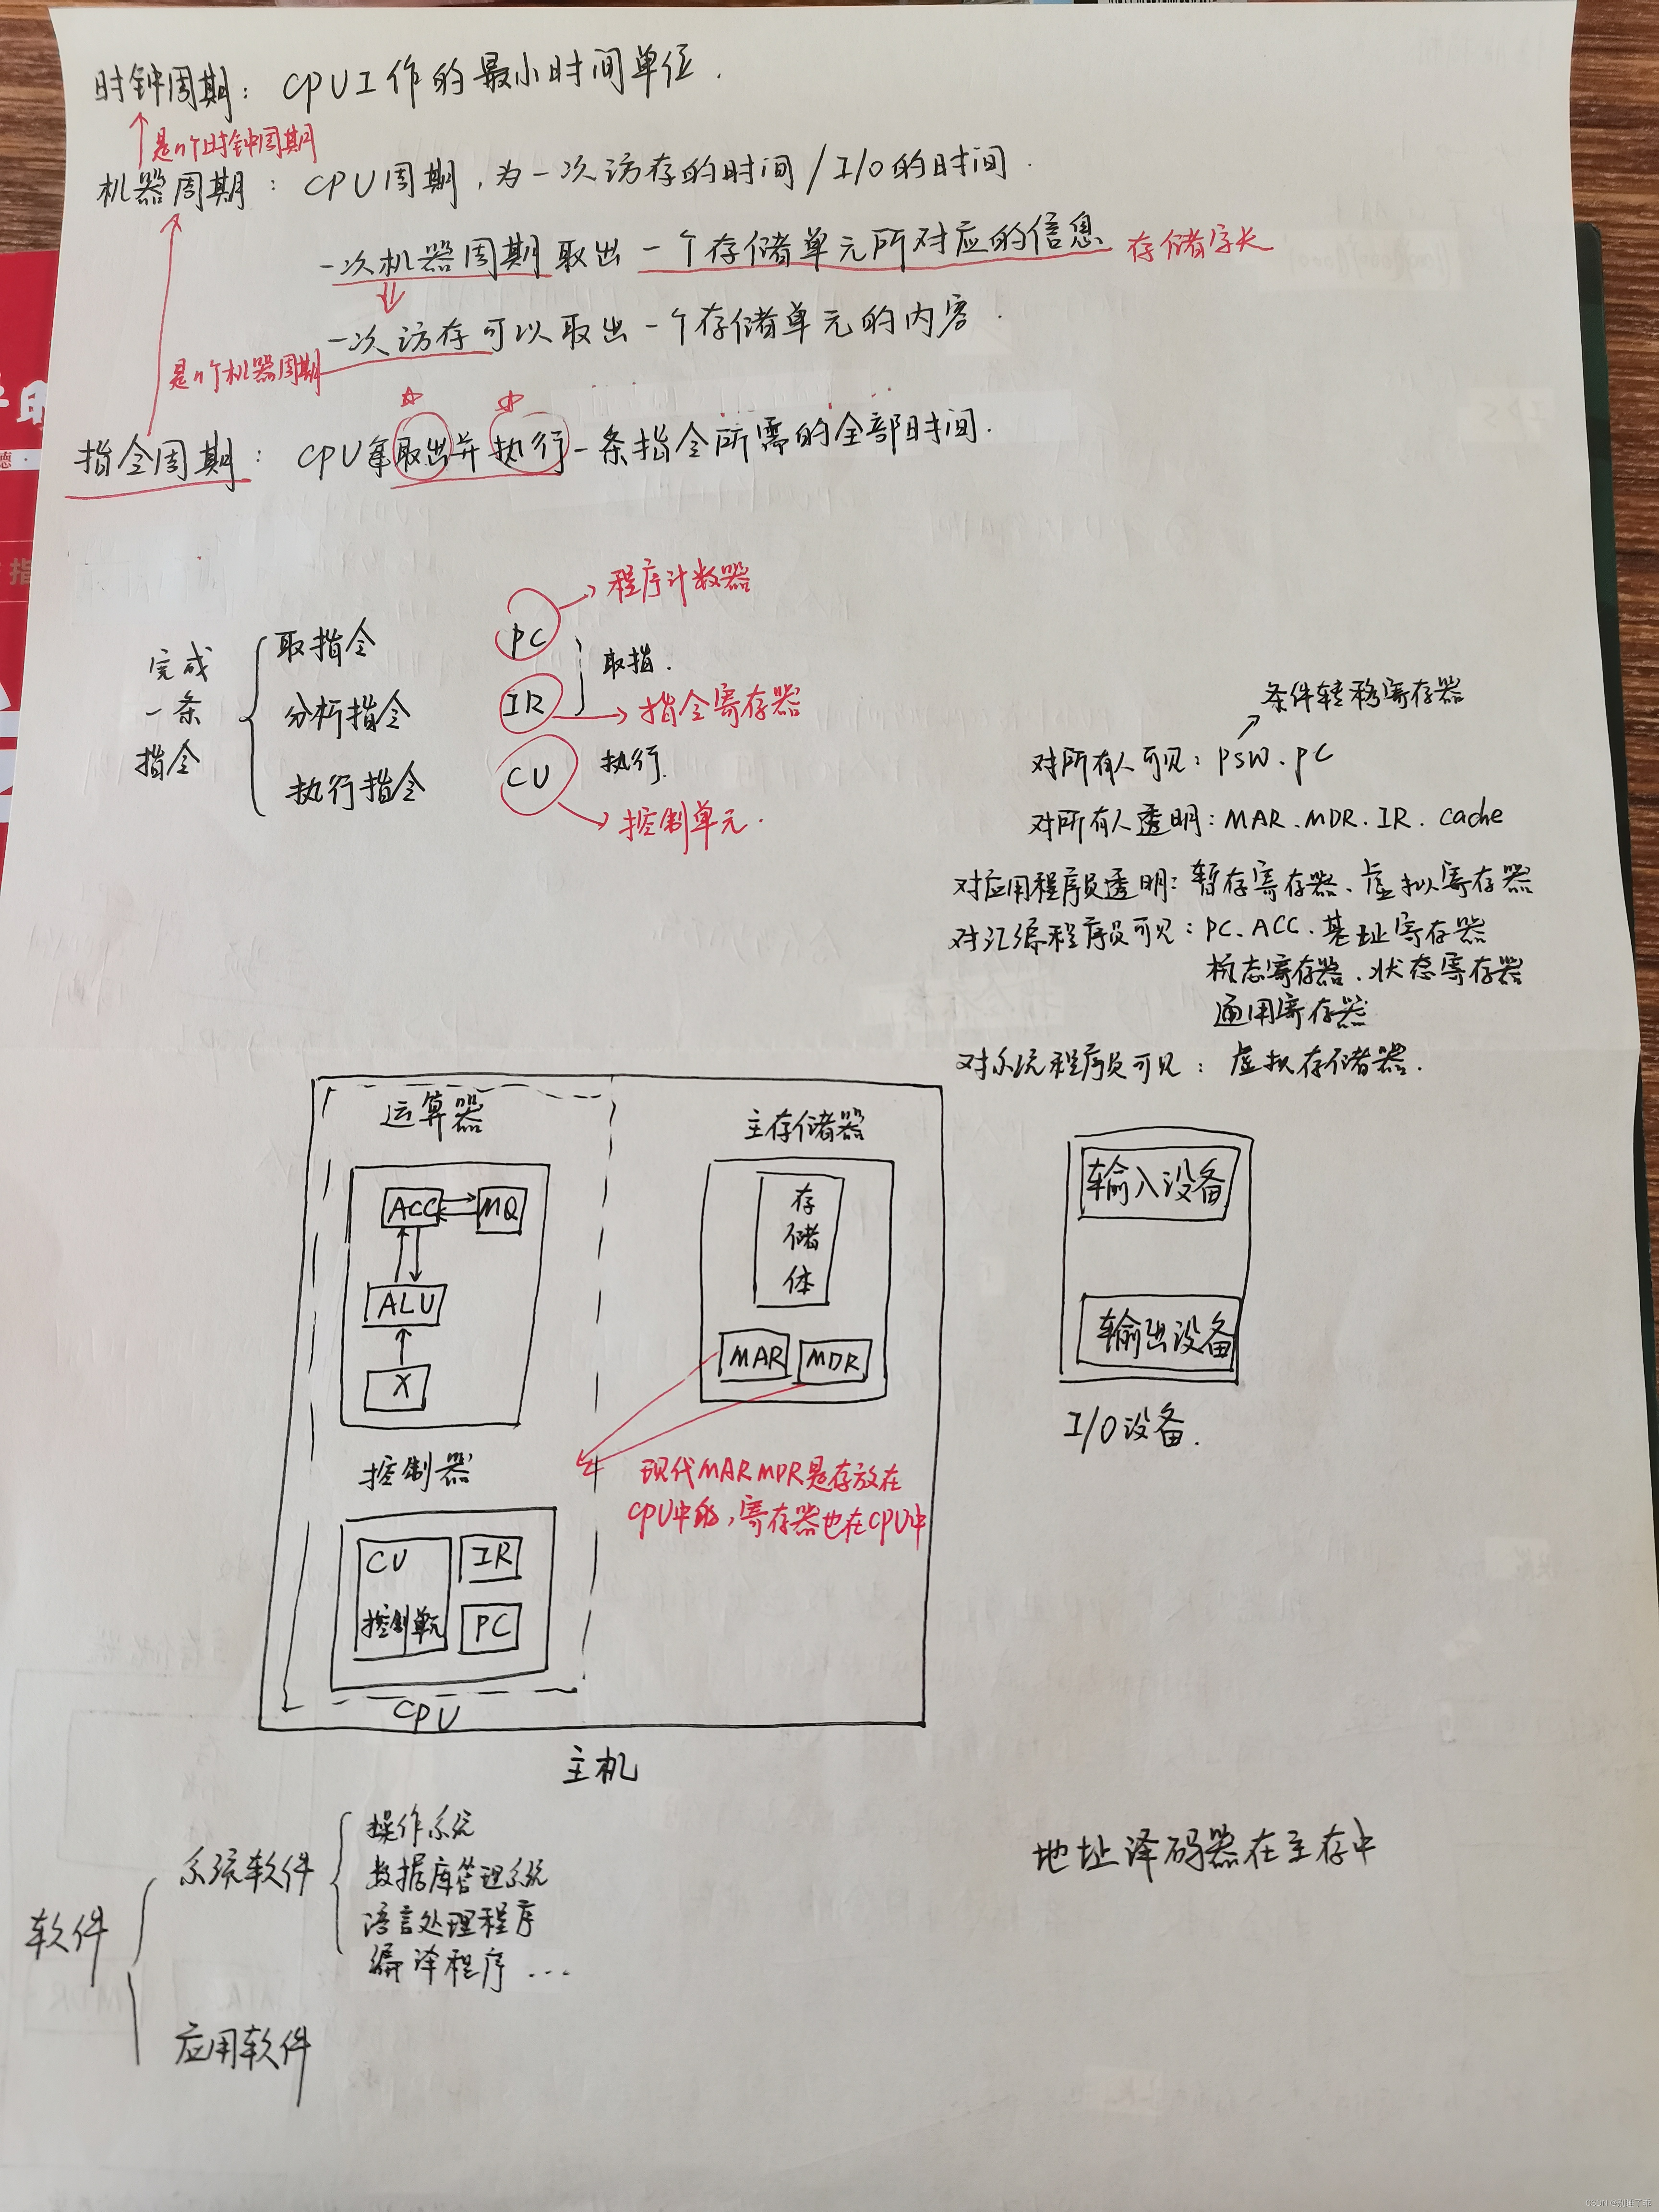 时钟周期：CPU工作的最小时间单位.
是n个时钟周期
机器周期：CPU周期，为一次访存的时间/I/O的时间.
一次机器周期取出一个存储单元所对应的信息 存储字长
一次访存可以取出一个存储单元的内容.
是n个机器周期
指令周期：CPU拿取出并执行一条指令所需的全部时间.
完成
一条
指令
取指令
分析指令
执行指令
PC
程序计数器
取指.
IR
指令寄存器
CU
执行.
控制单元.
条件转移寄存器
对所有人可见：PSW.PC
对所有人透明：MAR.MDR.IR.cache
对应用程序员透明：暂存寄存器、虚拟寄存器
对汇编程序员可见：PC、ACC、基址寄存器
标态寄存器、状态寄存器
通用寄存器
对系统程序员可见：虚拟存储器.
运算器
ACC
MQ
ALU
X
控制器
CU
控制单元
IR
PC
CPU
主存储器
存
储
体
MAR
MDR
现代MAR MDR是存放在
CPU中的，寄存器也在CPU中
主机
输入设备
输出设备
I/O设备.
软件
系统软件
操作系统
数据库管理系统
语言处理程序
编译程序...
应用软件
地址译码器在主存中